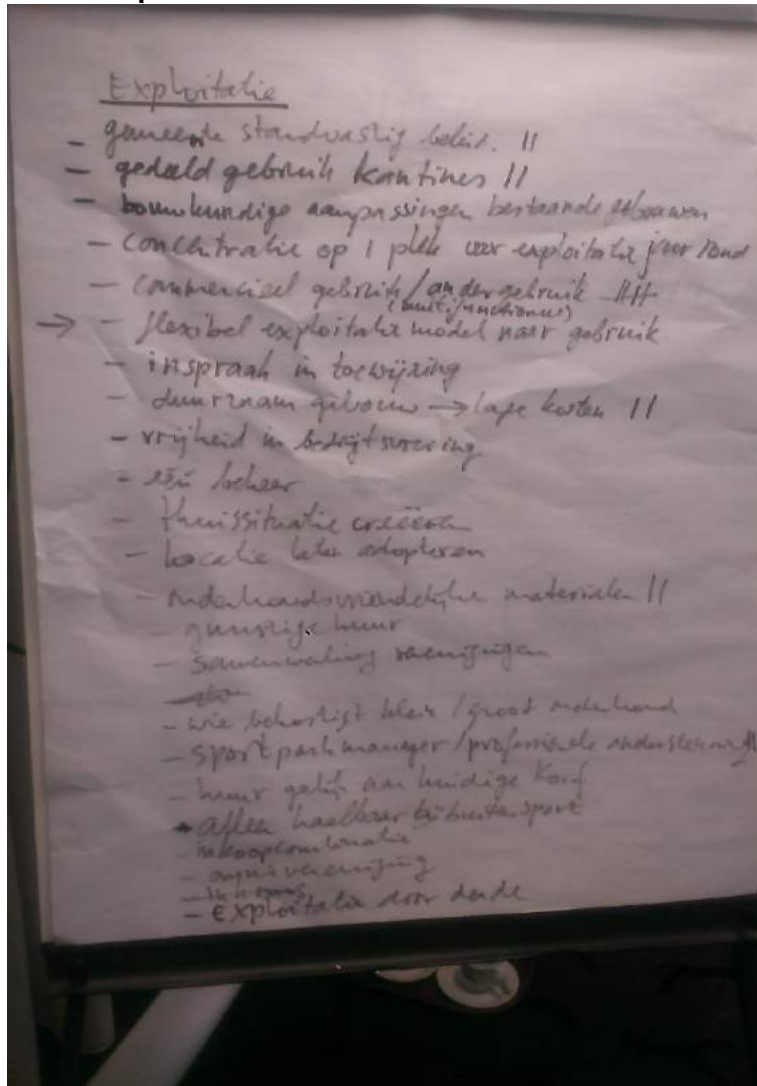 Exploitatie
- gemeente standvastig beleid. ||
- gedeeld gebruik kantines ||
- bouwkundige aanpassingen bestaande gebouwen
- concentratie op 1 plek voor exploitatie jaar rond
- commercieel gebruik / ander gebruik
(multifunctioneel)
→ - flexibel exploitatie model naar gebruik
- inspraak in toewijzing
- duurzaam gebouw → lage kosten ||
- vrijheid in bedrijfsvoering
- één beheer
- thuissituatie creëren
- Locatie laten adopteren
- onderhoudsvriendelijke materialen ||
- gunstige huur
- samenwerking verenigingen
- wie bekostigt klein / groot onderhoud
- sportparkmanager / professionele ondersteuning
- huur gelijk aan huidige
- alleen haalbaar bij buitensport
- inkoopcombinatie
- vereniging
- Exploitatie door derde